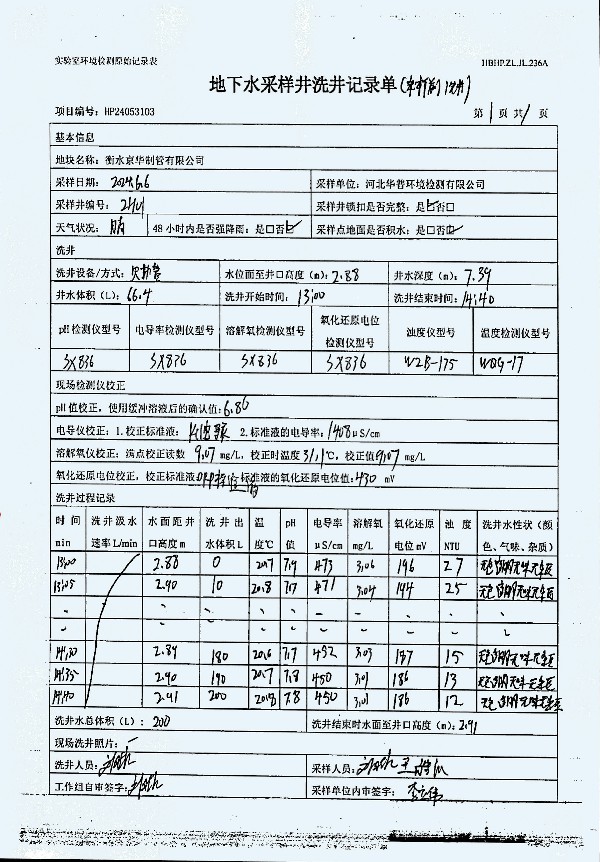 实验室环境检测原始记录表 HBHP.ZL.JL.236A
地下水采样井洗井记录单(采样前洗井)
项目编号: HP24053103 第1页 共1页
基本信息
地块名称: 衡水京华制管有限公司
采样日期: 2024.6.6 采样单位: 河北华普环境检测有限公司
采样井编号: 采样井锁扣是否完整: 是☑否□
天气状况: 晴 48小时内是否强降雨: 是□否☑ 采样点地面是否积水: 是□否☑
洗井
洗井设备/方式: 贝勒管 水位面至井口高度 (m): 2.88 井水深度 (m): 7.39
井水体积 (L): 66.4 洗井开始时间: 13:00 洗井结束时间: 14:40
pH检测仪型号 电导率检测仪型号 溶解氧检测仪型号 氧化还原电位检测仪型号 浊度仪型号 温度检测仪型号
SX836 SX836 SX836 SX836 WZB-175 WQG-17
现场检测仪校正
pH值校正,使用缓冲溶液后的确认值: 6.86
电导仪校正: 1.校正标准液: 2.标准液的电导率: 1408μS/cm
溶解氧仪校正: 满点校正读数 9.07 mg/L, 校正时温度 31.1℃, 校正值: 9.07 mg/L
氧化还原电位校正, 校正标准液: ORP标准液 标准液的氧化还原电位值: 430 mV
洗井过程记录
时间 min 洗井汲水速率L/min 水面距井口高度m 洗井出水体积L 温度℃ pH值 电导率μS/cm 溶解氧mg/L 氧化还原电位mV 浊度NTU 洗井水性状(颜色、气味、杂质)
13:00 2.88 0 20.7 7.9 473 3.06 196 27 无色透明无味无杂质
13:05 2.90 10 20.8 7.7 471 3.04 194 25 无色透明无味无杂质
14:30 2.89 180 20.6 7.7 452 3.03 187 15 无色透明无味无杂质
14:35 2.90 190 20.7 7.8 450 3.01 186 13 无色透明无味无杂质
14:40 2.91 200 20.8 7.8 450 3.01 186 12 无色透明无味无杂质
洗井水总体积 (L): 200 洗井结束时水面至井口高度 (m): 2.91
现场洗井照片: —
洗井人员: 采样人员:
工作组自审签字: 采样单位内审签字: